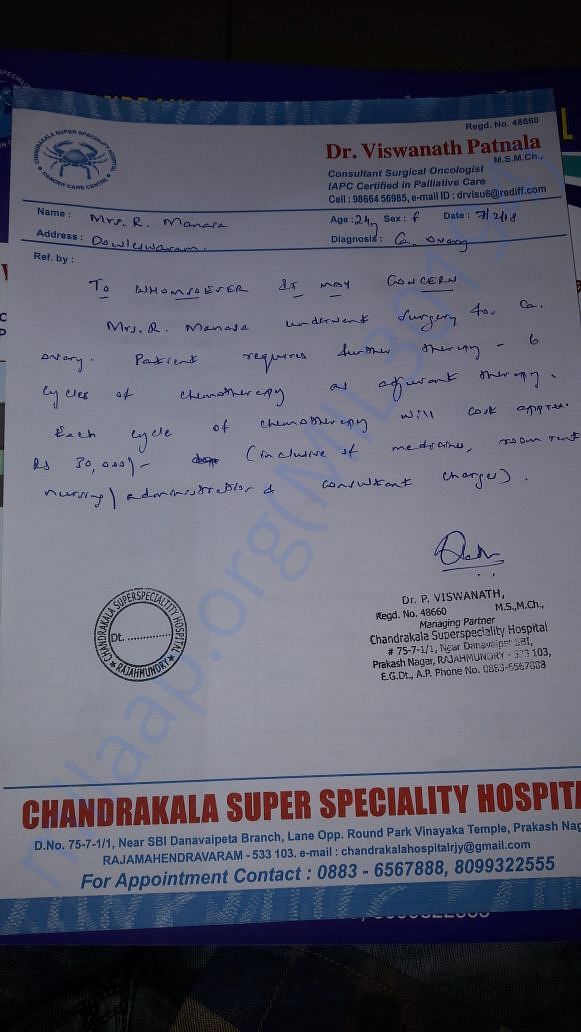 Regd. No. 48660
CHANDRAKALA SUPER SPECIALITY HOSPITAL
CANCER CARE CENTRE
Dr. Viswanath Patnala
M.S.M.Ch.,
Consultant Surgical Oncologist
IAPC Certified in Palliative Care
Cell : 98664 56985, e-mail ID : drvisu6@rediff.com
Name : Mrs. R. Manasa Age : 24y Sex : f Date : 7/2/18
Address : Dowleswaram. Diagnosis : Ca. ovary
Ref. by :
TO WHOMSOEVER IT MAY CONCERN
Mrs. R. Manasa underwent Surgery for Ca.
ovary. Patient requires further therapy - 6
cycles of chemotherapy as adjuvant therapy.
Each cycle of chemotherapy will cost approx.
Rs 30,000/- (inclusive of medicines, room rent
nursing / administration & consultant charges).
Dr. P. VISWANATH,
M.S.,M.Ch.,
Regd. No. 48660
Managing Partner
Chandrakala Superspeciality Hospital
# 75-7-1/1, Near Danavaipet SBI,
Prakash Nagar, RAJAHMUNDRY - 533 103,
E.G.Dt., A.P. Phone No. 0883-6567888
CHANDRAKALA SUPERSPECIALITY HOSPITAL
Dt. ..............
RAJAHMUNDRY
milaap.org(MIL
CHANDRAKALA SUPER SPECIALITY HOSPITA
D.No. 75-7-1/1, Near SBI Danavaipeta Branch, Lane Opp. Round Park Vinayaka Temple, Prakash Nag
RAJAMAHENDRAVARAM - 533 103. e-mail : chandrakalahospitalrjy@gmail.com
For Appointment Contact : 0883 - 6567888, 8099322555